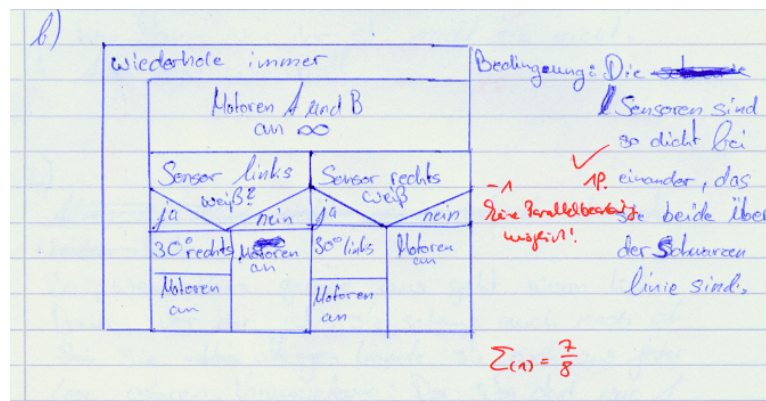 b)
wiederhole immer
Motoren A und B
an ∞
Sensor links
weiß?
ja
nein
30° rechts
Motoren
an
Motoren
an
Sensor rechts
weiß
ja
nein
30° links
Motoren
an
Motoren
an
Bedingung: Die
Sensoren sind
so dicht bei
einander, das
sie beide über
der Schwarzen
linie sind.
1P.
-1
Keine Parallelbearbeitung
möglich!
Σ(1) = 7/8